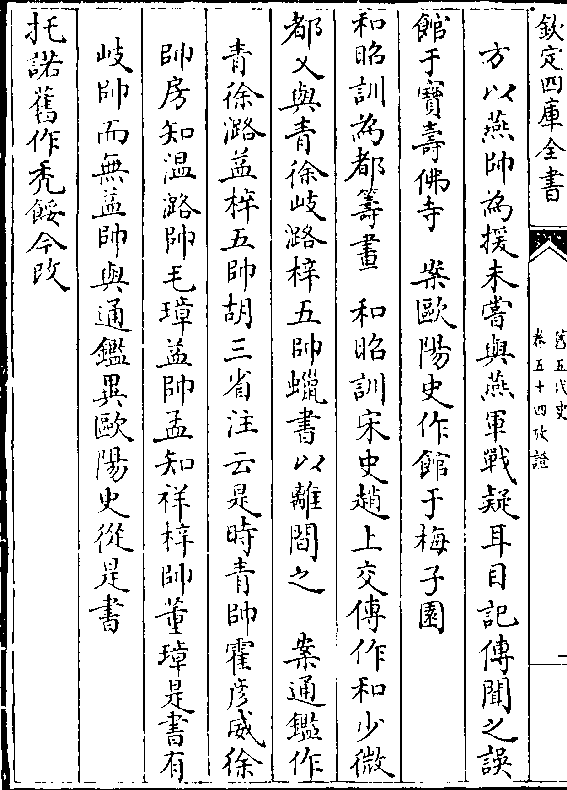 欽定四庫全書
舊五代史
卷五十四攷證
一
方以燕帥為援未嘗與燕軍戰疑耳目記傳聞之誤
館于寶壽佛寺　案歐陽史作館于梅子園
和昭訓為都籌畫　和昭訓宋史趙上交傳作和少微
都又與青徐岐潞梓五帥蠟書以離間之　案通鑑作
青徐潞益梓五帥胡三省注云是時青帥霍彦威徐
帥房知温潞帥毛璋益帥孟知祥梓帥董璋是書有
岐帥而無益帥與通鑑異歐陽史從是書
托諾舊作秃餒今改